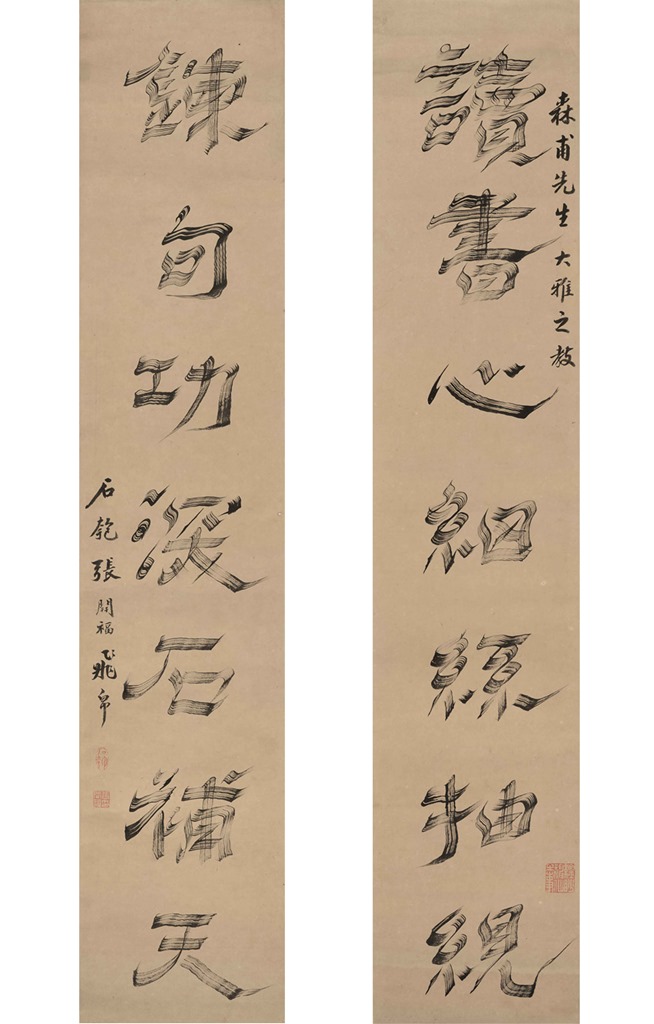 森甫先生大雅之教
讀書心細絲抽絸
鍊句功深石補天
石匏張開福飛帛